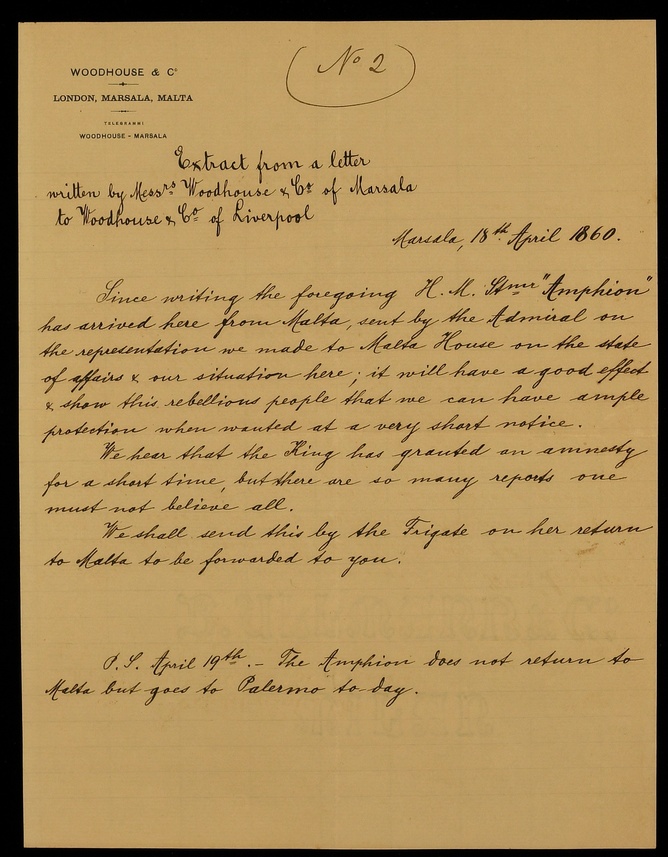 (No 2)
WOODHOUSE & Co
LONDON, MARSALA, MALTA
TELEGRAMMI
WOODHOUSE - MARSALA
Extract from a letter
written by Messrs Woodhouse & Co of Marsala
to Woodhouse & Co of Liverpool
Marsala, 18th April 1860.
Since writing the foregoing H. M. Stmr "Amphion"
has arrived here from Malta, sent by the Admiral on
the representation we made to Malta House on the state
of affairs & our situation here; it will have a good effect
& show this rebellious people that we can have ample
protection when wanted at a very short notice.
We hear that the King has granted an amnesty
for a short time, but there are so many reports one
must not believe all.
We shall send this by the Frigate on her return
to Malta to be forwarded to you.
P.S. April 19th. - The Amphion does not return to
Malta but goes to Palermo to-day.